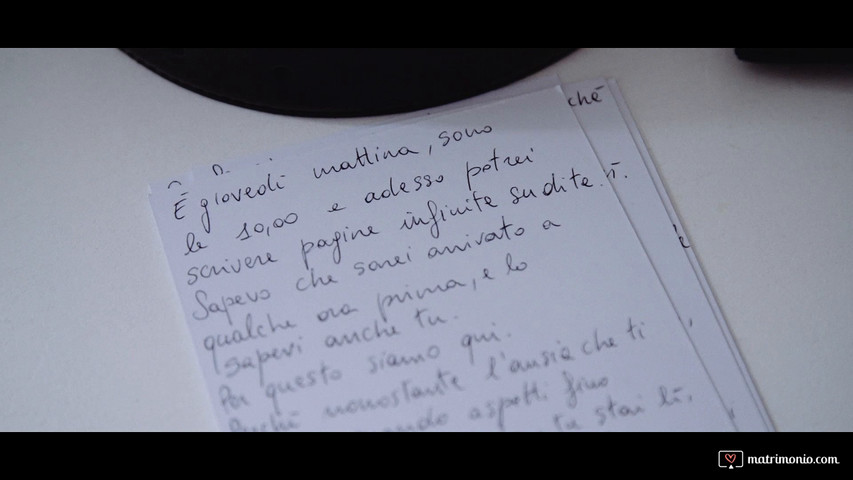 È giovedì mattina, sono
le 10,00 e adesso potrei
scrivere pagine infinite su di te.
Sapevo che sarei arrivato a
qualche ora prima, e lo
sapevi anche tu.
Per questo siamo qui.
Perché nonostante l'ansia che ti
aspetti fino
tu stai lì.
ché
matrimonio.com